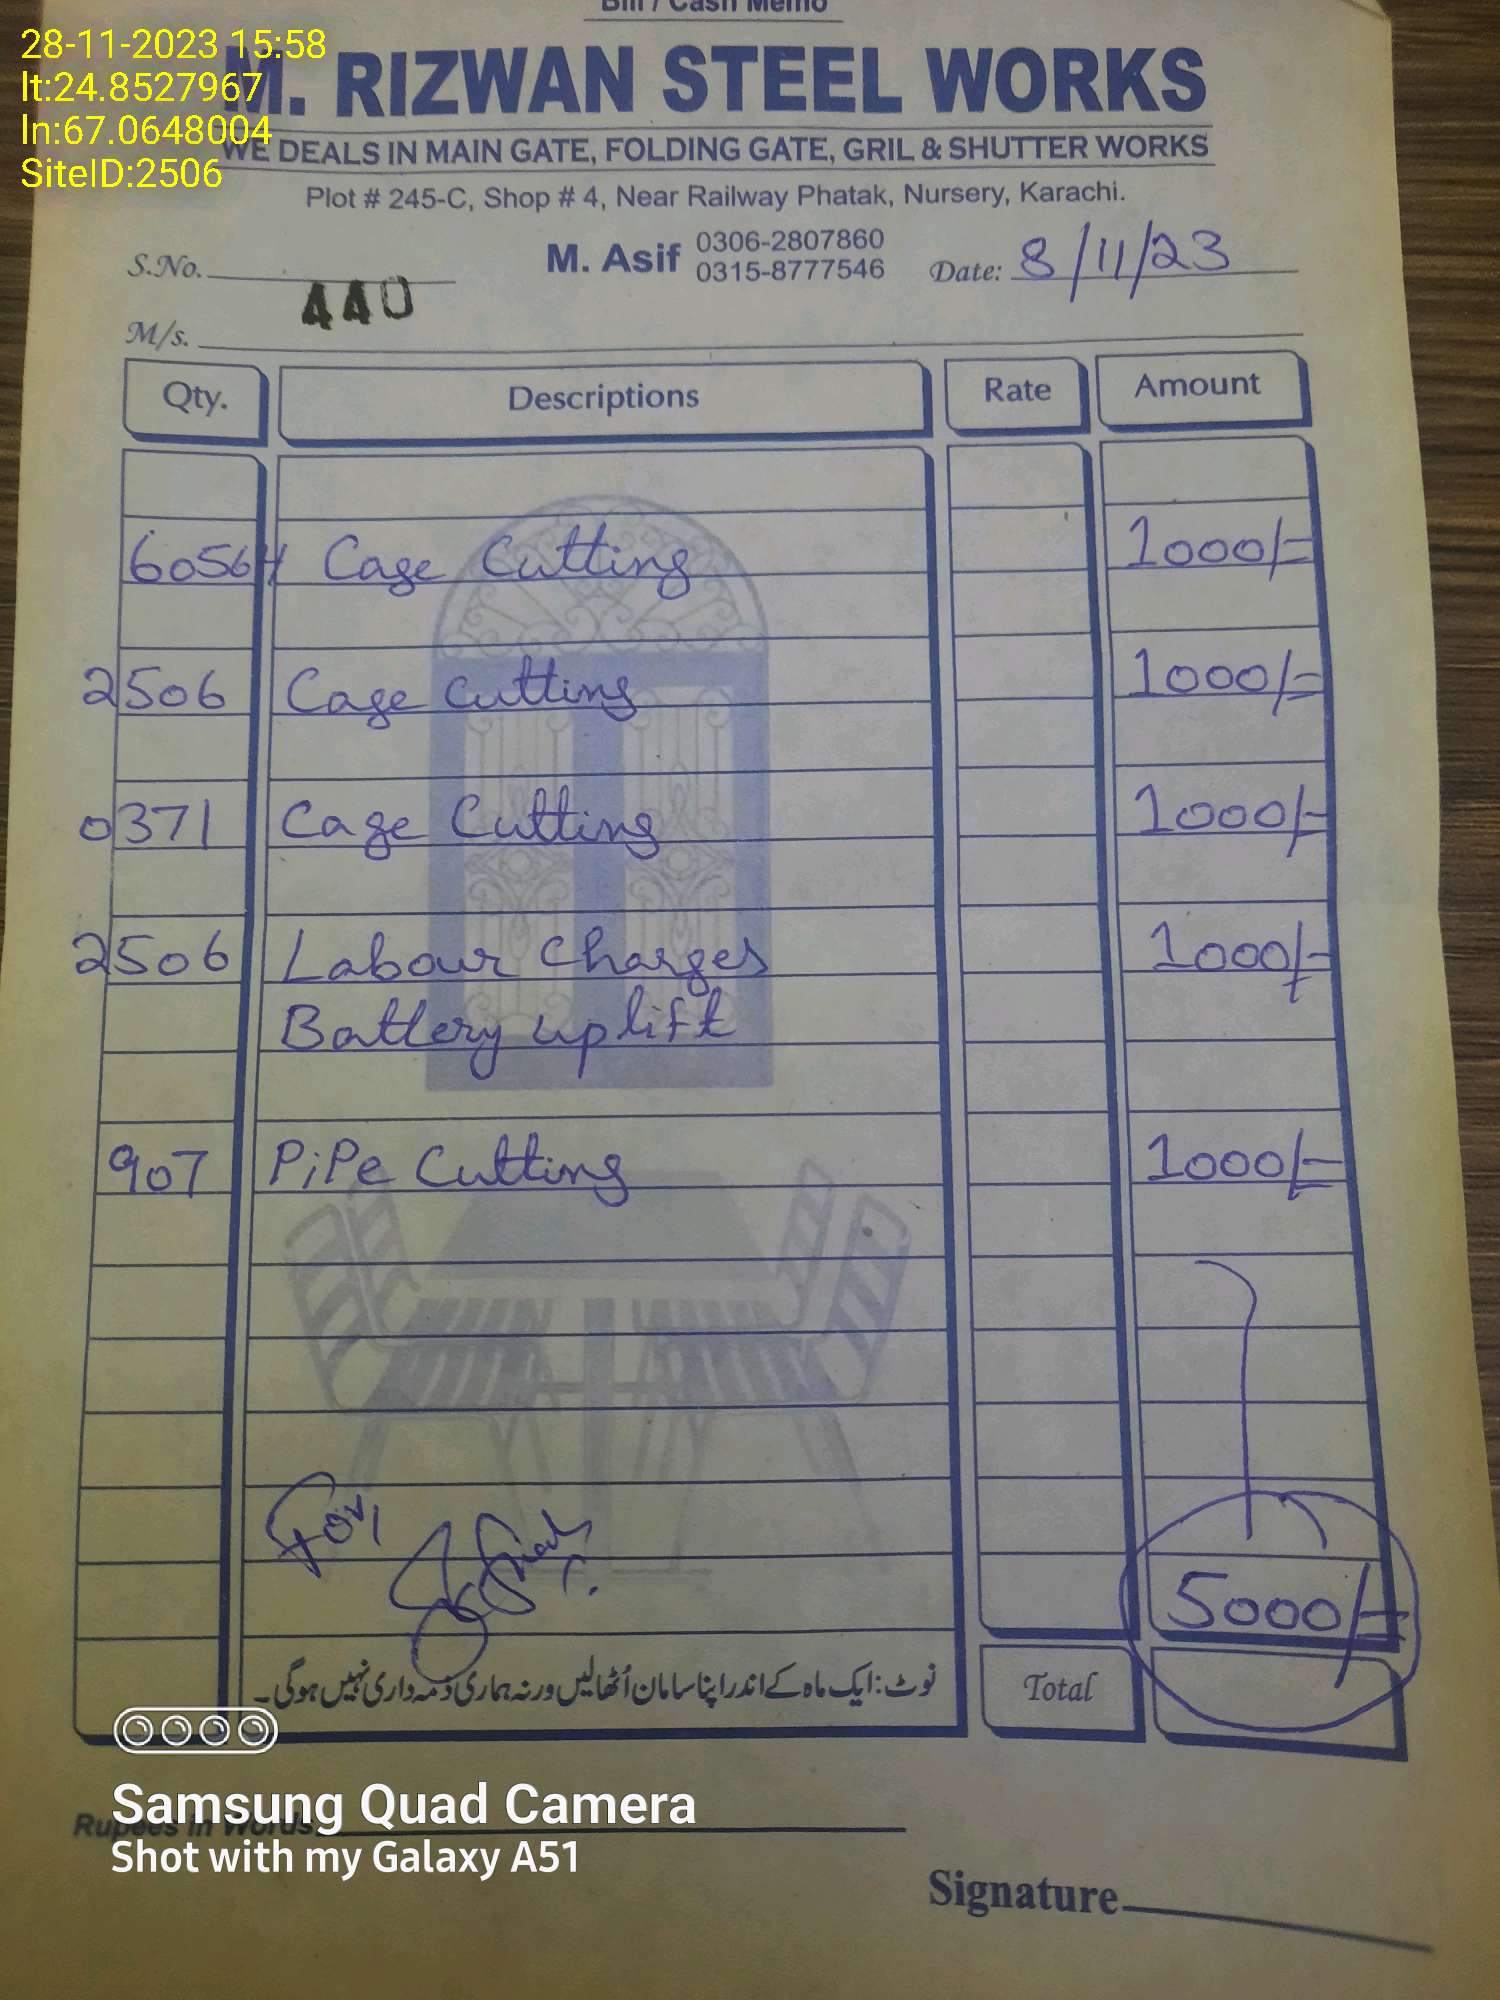 Bill / Cash Memo
28-11-2023 15:58
lt:24.8527967
ln:67.0648004
SiteID:2506
M. RIZWAN STEEL WORKS
WE DEALS IN MAIN GATE, FOLDING GATE, GRIL & SHUTTER WORKS
Plot # 245-C, Shop # 4, Near Railway Phatak, Nursery, Karachi.
S.No. 440
M. Asif 0306-2807860
0315-8777546
Date: 8/11/23
M/s.
Qty. Descriptions Rate Amount
60564 Cage Cutting 1000/=
2506 Cage Cutting 1000/=
0371 Cage Cutting 1000/=
2506 Labour Charges 1000/=
Battery uplift
907 PiPe Cutting 1000/=
5000/=
نوٹ: ایک ماہ کے اندر اپنا سامان اُٹھالیں ورنہ ہماری ذمہ داری نہیں ہوگی۔
Total
Samsung Quad Camera
Rupees in Words:
Shot with my Galaxy A51
Signature